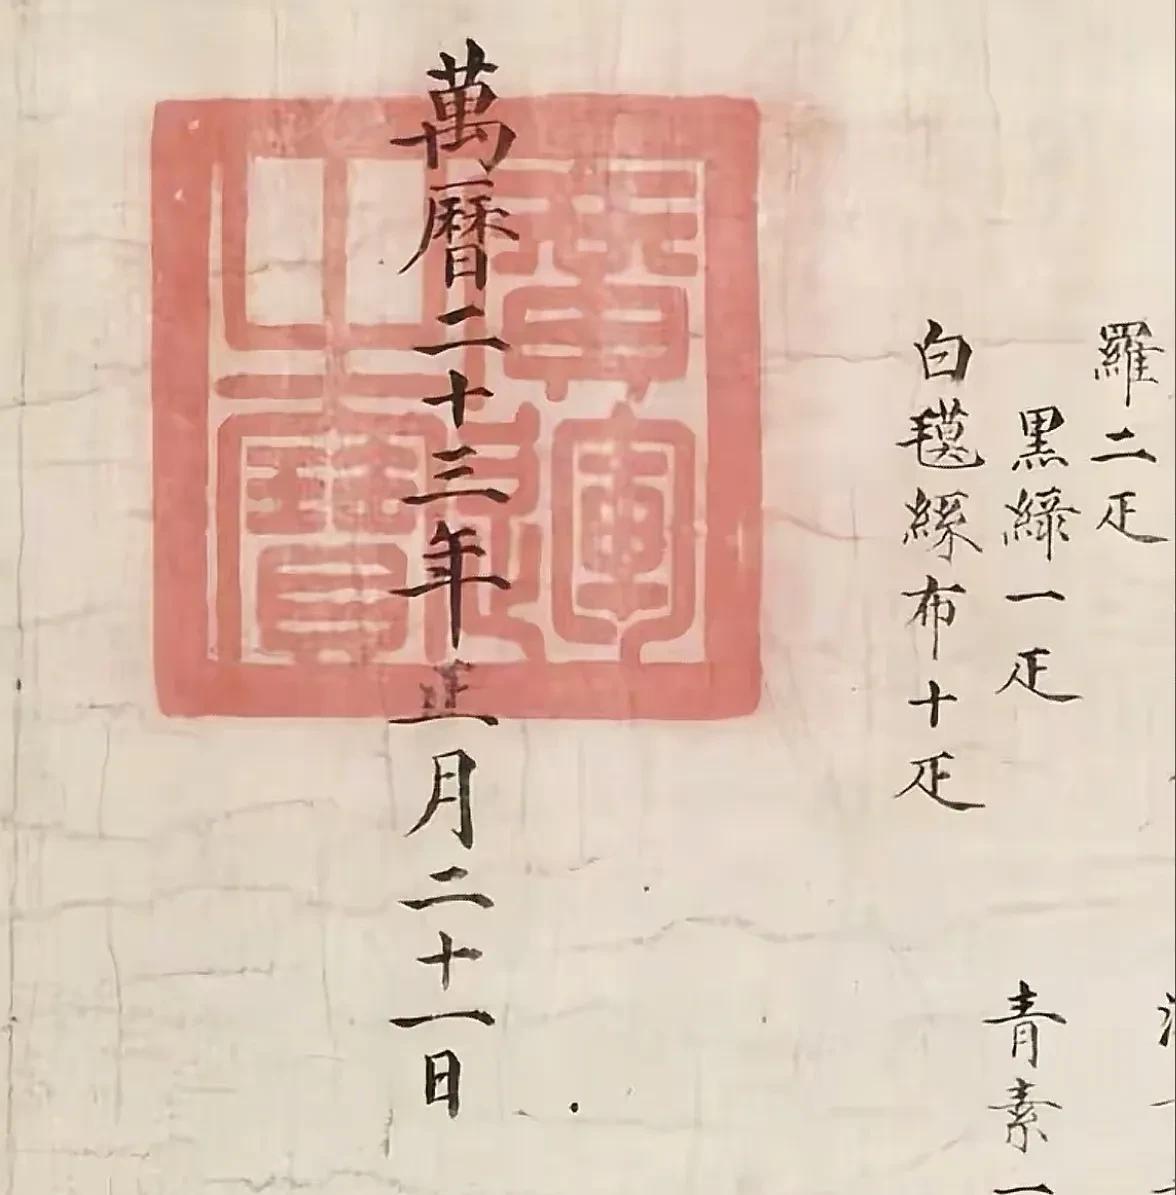 羅二疋
黑綠一疋
青素一
白氁絲布十疋
萬曆二十三年正月二十一日
廣運之寶